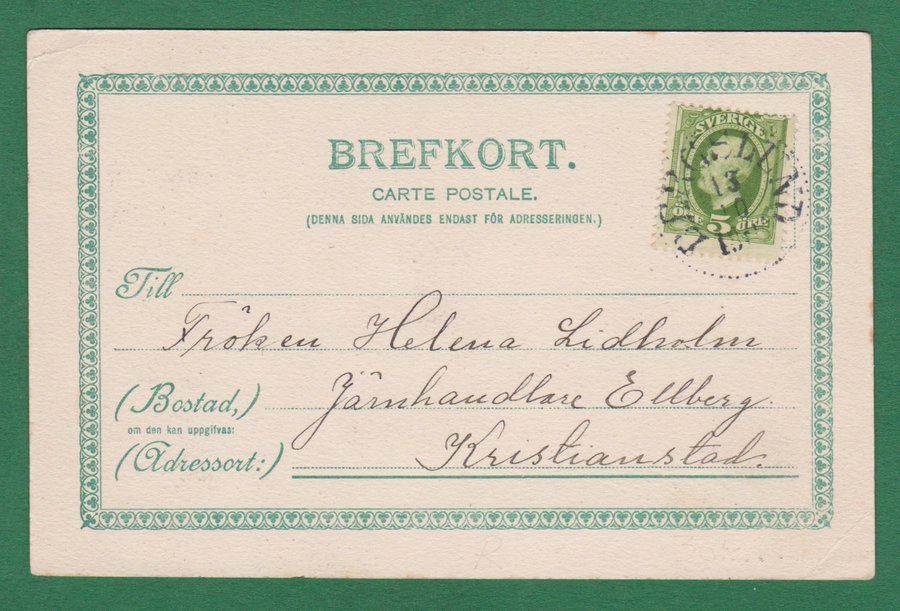 BREFKORT.
CARTE POSTALE.
(DENNA SIDA ANVÄNDES ENDAST FÖR ADRESSERINGEN.)
SVERIGE
ÖRE 5 ÖRE
13
Till
Fröken Helena Lidholm
(Bostad,) Järnhandlare Ellberg.
om den kan uppgifvas:
(Adressort:) Kristianstad.